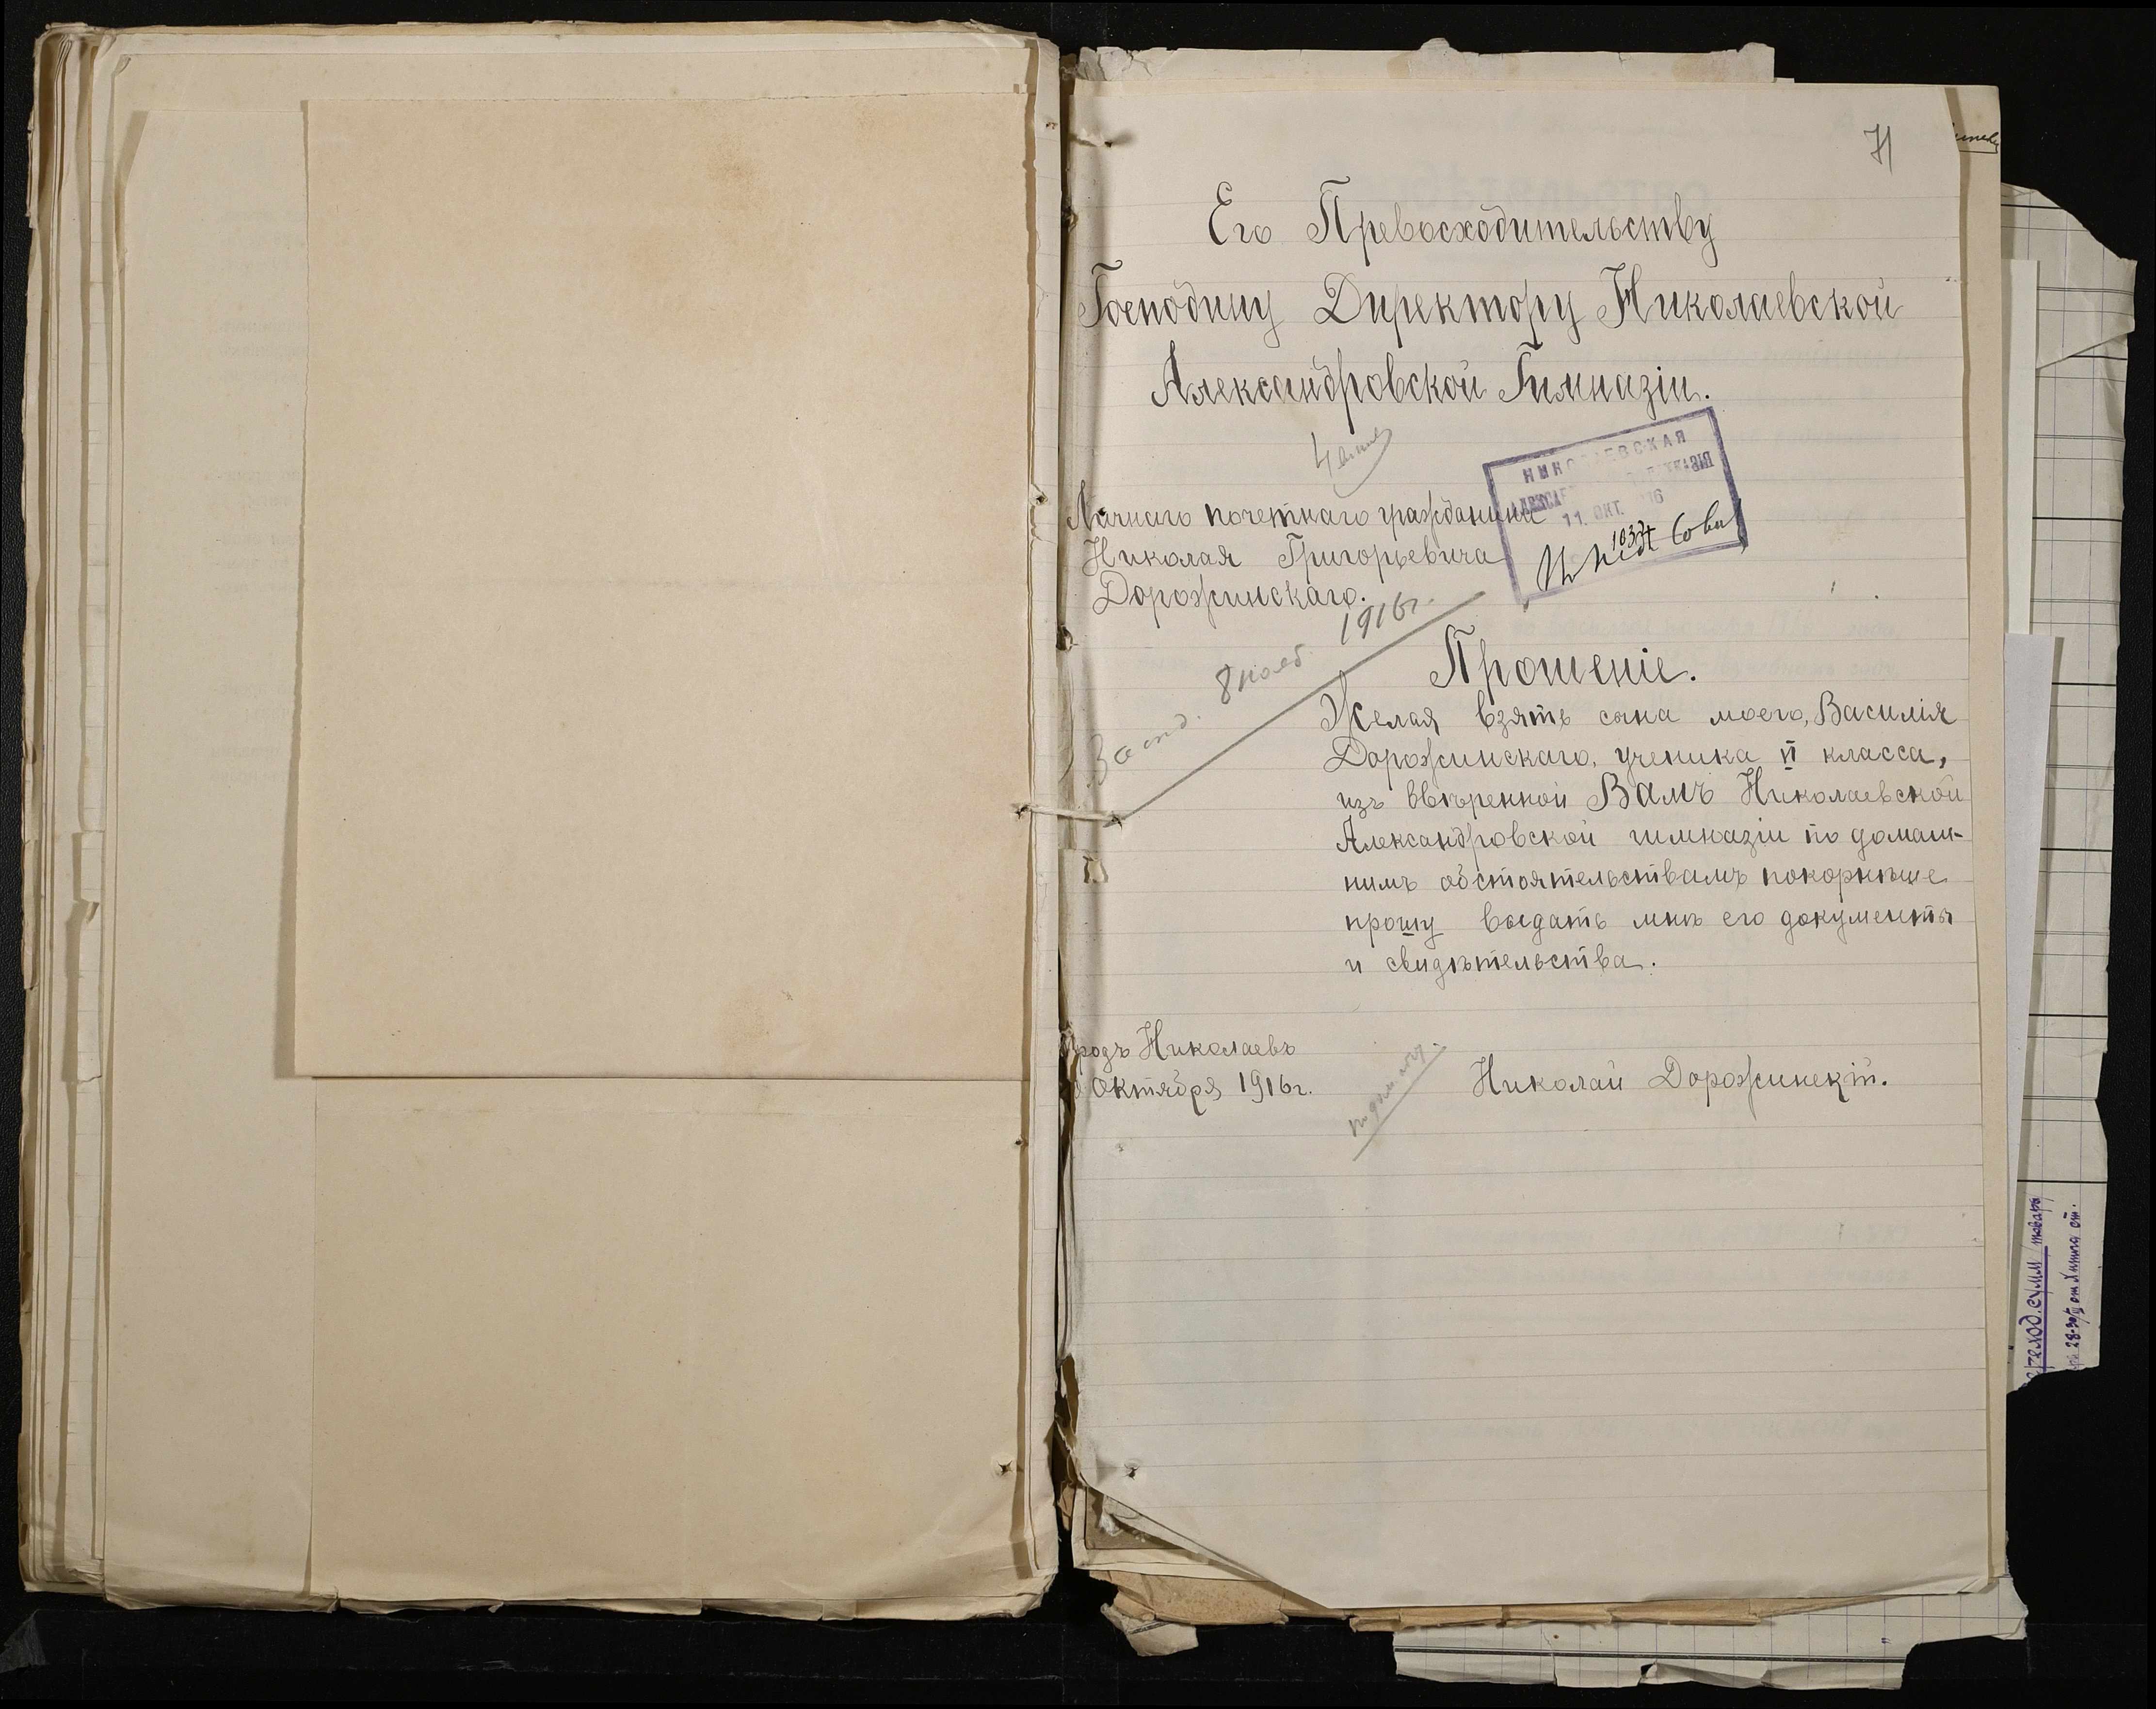 71
Его Превосходительству
Господину Директору Николаевской
Александровской Гимназіи.
НИКОЛАЕВСКАЯ
11. ОКТ. 1916
Личнаго почетнаго гражданина
Николая Григорьевича
Дорожинскаго.
8 нояб. 1916 г.
Прошеніе.
Желая взять сына моего, Василія
Дорожинскаго, ученика II класса,
изъ ввѣренной Вамъ Николаевской
Александровской гимназіи по домаш-
нимъ обстоятельствамъ покорнѣше
прошу выдать мнѣ его документы
и свидѣтельства.
родъ Николаевъ
Октября 1916 г.
Николай Дорожинскій.